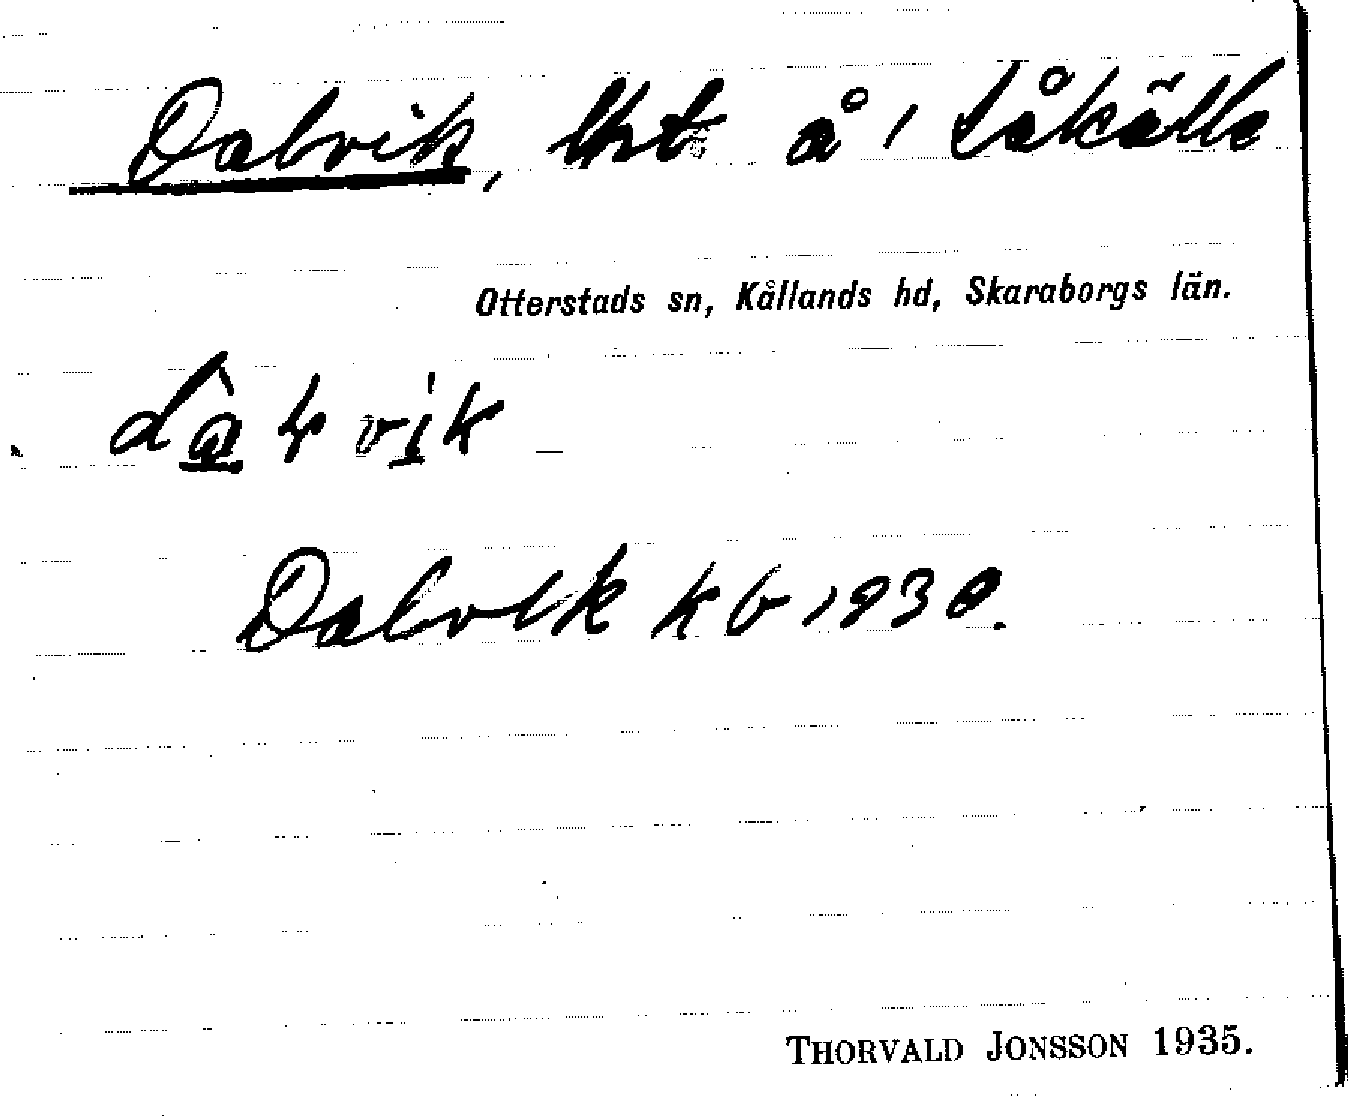 Dalvik, lht å 1 Låkälle
Otterstads sn, Kållands hd, Skaraborgs län.
dalvik
Dalvik kb 1930.
THORVALD JONSSON 1935.